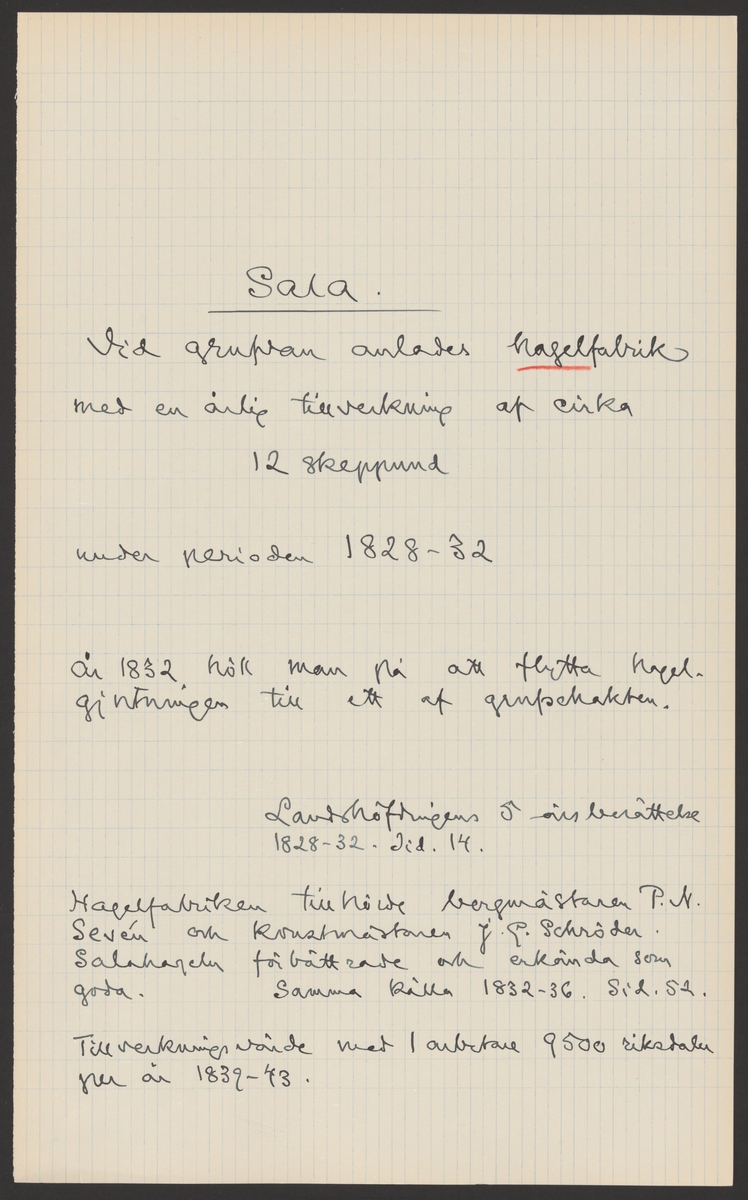 Sala.
Vid grufvan anlades hagelfabrik
med en årlig tillverkning af cirka
12 skeppund
under perioden 1828-32
År 1832 höll man på att flytta hagel-
gjutningen till ett af grufschakten.
Landshöfdingens 5 års berättelse
1828-32. Sid. 14.
Hagelfabriken tillhörde bergmästaren P. N.
Sevén och konstmästaren J. G. Schröder.
Salahageln förbättrade och erkända som
goda. Samma källa 1832-36. Sid. 52.
Tillverkningsvärde med 1 arbetare 9500 riksdaler
per år 1839-43.